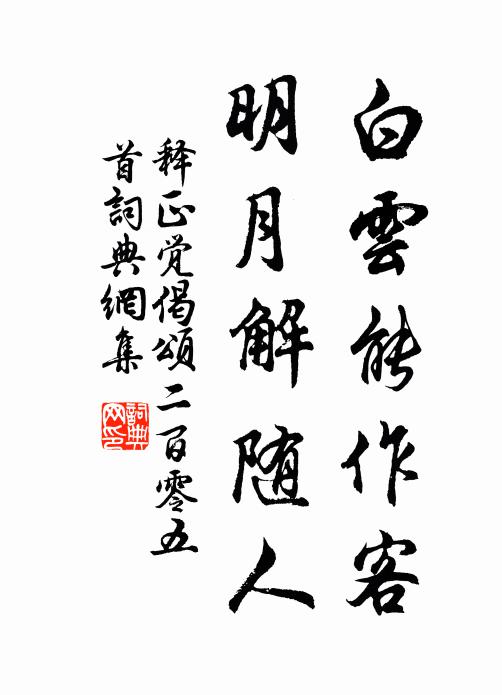 白雲能作客
明月解随人
释正覚偈頌二百零五
首詞典網集
詞典
网印